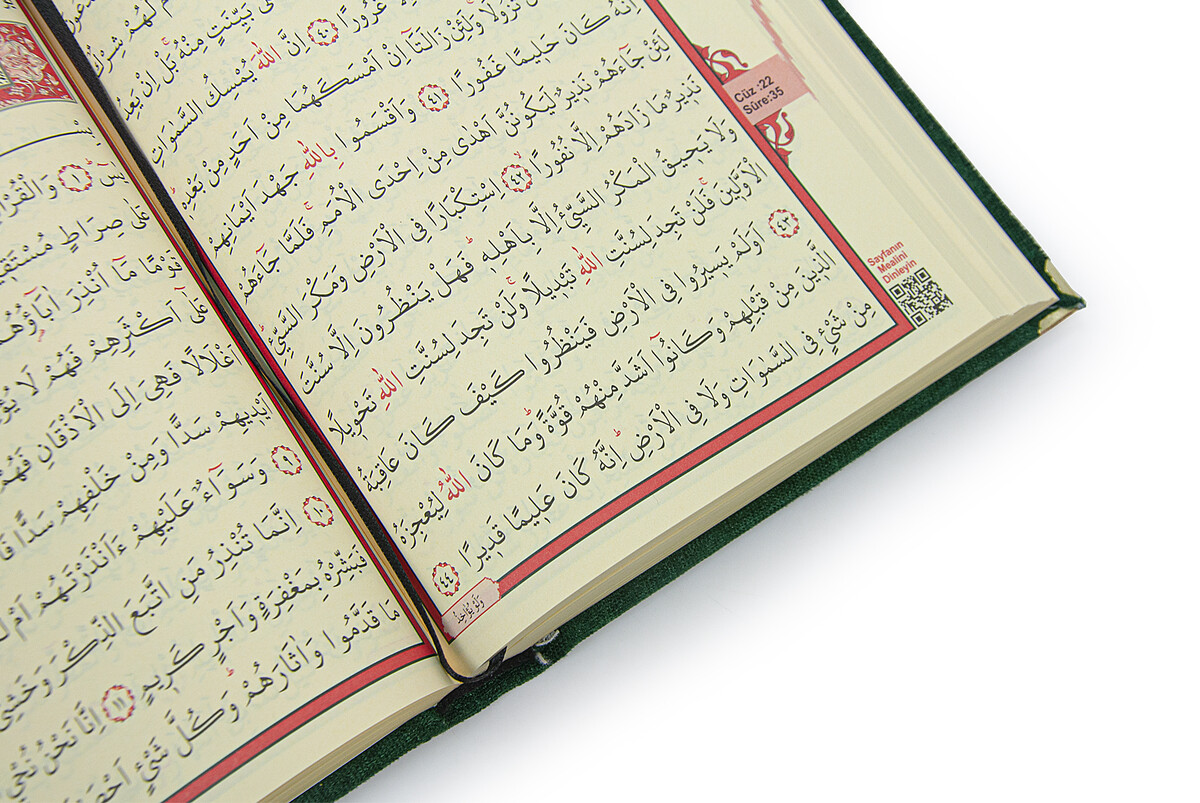 لَهُمْ شِرْكٌ
بَيِّنَتٍ مِنْهُ بَلْ اِنْ يَعِدُ
غُرُورًا ﴿٤٠﴾ اِنَّ اللّٰهَ يُمْسِكُ السَّمٰوَاتِ
تَزُولَا وَلَئِنْ زَالَتَٓا اِنْ اَمْسَكَهُمَا مِنْ اَحَدٍ مِنْ بَعْدِهٖ
اِنَّهُ كَانَ حَلٖيمًا غَفُورًا ﴿٤١﴾ وَاَقْسَمُوا بِاللّٰهِ جَهْدَ اَيْمَانِهِمْ
لَئِنْ جَٓاءَهُمْ نَذٖيرٌ لَيَكُونُنَّ اَهْدٰى مِنْ اِحْدَى الْاُمَمِ فَلَمَّا جَٓاءَهُمْ
نَذٖيرٌ مَا زَادَهُمْ اِلَّا نُفُورًا ﴿٤٢﴾ اِسْتِكْبَارًا فِى الْاَرْضِ وَمَكْرَ السَّيِّئِ
وَلَا يَحٖيقُ الْمَكْرُ السَّيِّئُ اِلَّا بِاَهْلِهٖ فَهَلْ يَنْظُرُونَ اِلَّا سُنَّتَ
الْاَوَّلٖينَ فَلَنْ تَجِدَ لِسُنَّتِ اللّٰهِ تَبْدٖيلًا وَلَنْ تَجِدَ لِسُنَّتِ اللّٰهِ تَحْوٖيلًا
﴿٤٣﴾ اَوَلَمْ يَسٖيرُوا فِى الْاَرْضِ فَيَنْظُرُوا كَيْفَ كَانَ عَاقِبَةُ
الَّذٖينَ مِنْ قَبْلِهِمْ وَكَانُٓوا اَشَدَّ مِنْهُمْ قُوَّةً وَمَا كَانَ اللّٰهُ لِيُعْجِزَهُ
مِنْ شَیْءٍ فِى السَّمٰوَاتِ وَلَا فِى الْاَرْضِ اِنَّهُ كَانَ عَلٖيمًا قَدٖيرًا
﴿٤٤﴾
وَلَوْ يُؤَاخِذُ
Cüz :22
Sûre:35
Sayfanın
Mealini
Dinleyin
يٰسٓ ﴿١﴾ وَالْقُرْاٰ
عَلٰى صِرَاطٍ مُسْتَقٖي
قَوْمًا مَٓا اُنْذِرَ اٰبَٓاؤُهُمْ
عَلٰٓى اَكْثَرِهِمْ فَهُمْ لَا يُؤْ
اَغْلَالًا فَهِىَ اِلَى الْاَذْقَانِ فَهُمْ
اَيْدٖيهِمْ سَدًّا وَمِنْ خَلْفِهِمْ سَدًّا فَا
﴿٩﴾ وَسَوَٓاءٌ عَلَيْهِمْ ءَاَنْذَرْتَهُمْ اَمْ لَ
﴿١٠﴾ اِنَّمَا تُنْذِرُ مَنِ اتَّبَعَ الذِّكْرَ وَخَشِىَ
فَبَشِّرْهُ بِمَغْفِرَةٍ وَاَجْرٍ كَرٖيمٍ ﴿١١﴾ اِنَّا نَحْنُ نُحْيِ
مَا قَدَّمُوا وَاٰثَارَهُمْ وَكُلَّ شَیْءٍ اَحْصَ